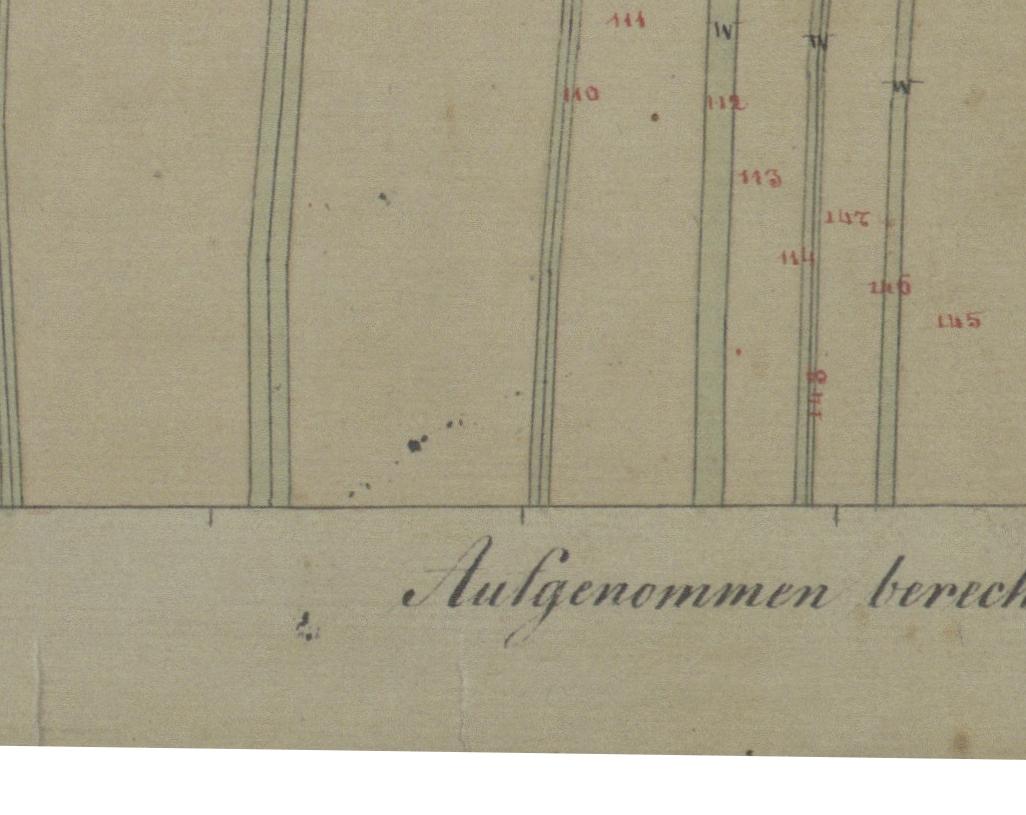 111
W
W
W
110
112
113
147
114
146
145
148
Aufgenommen berech